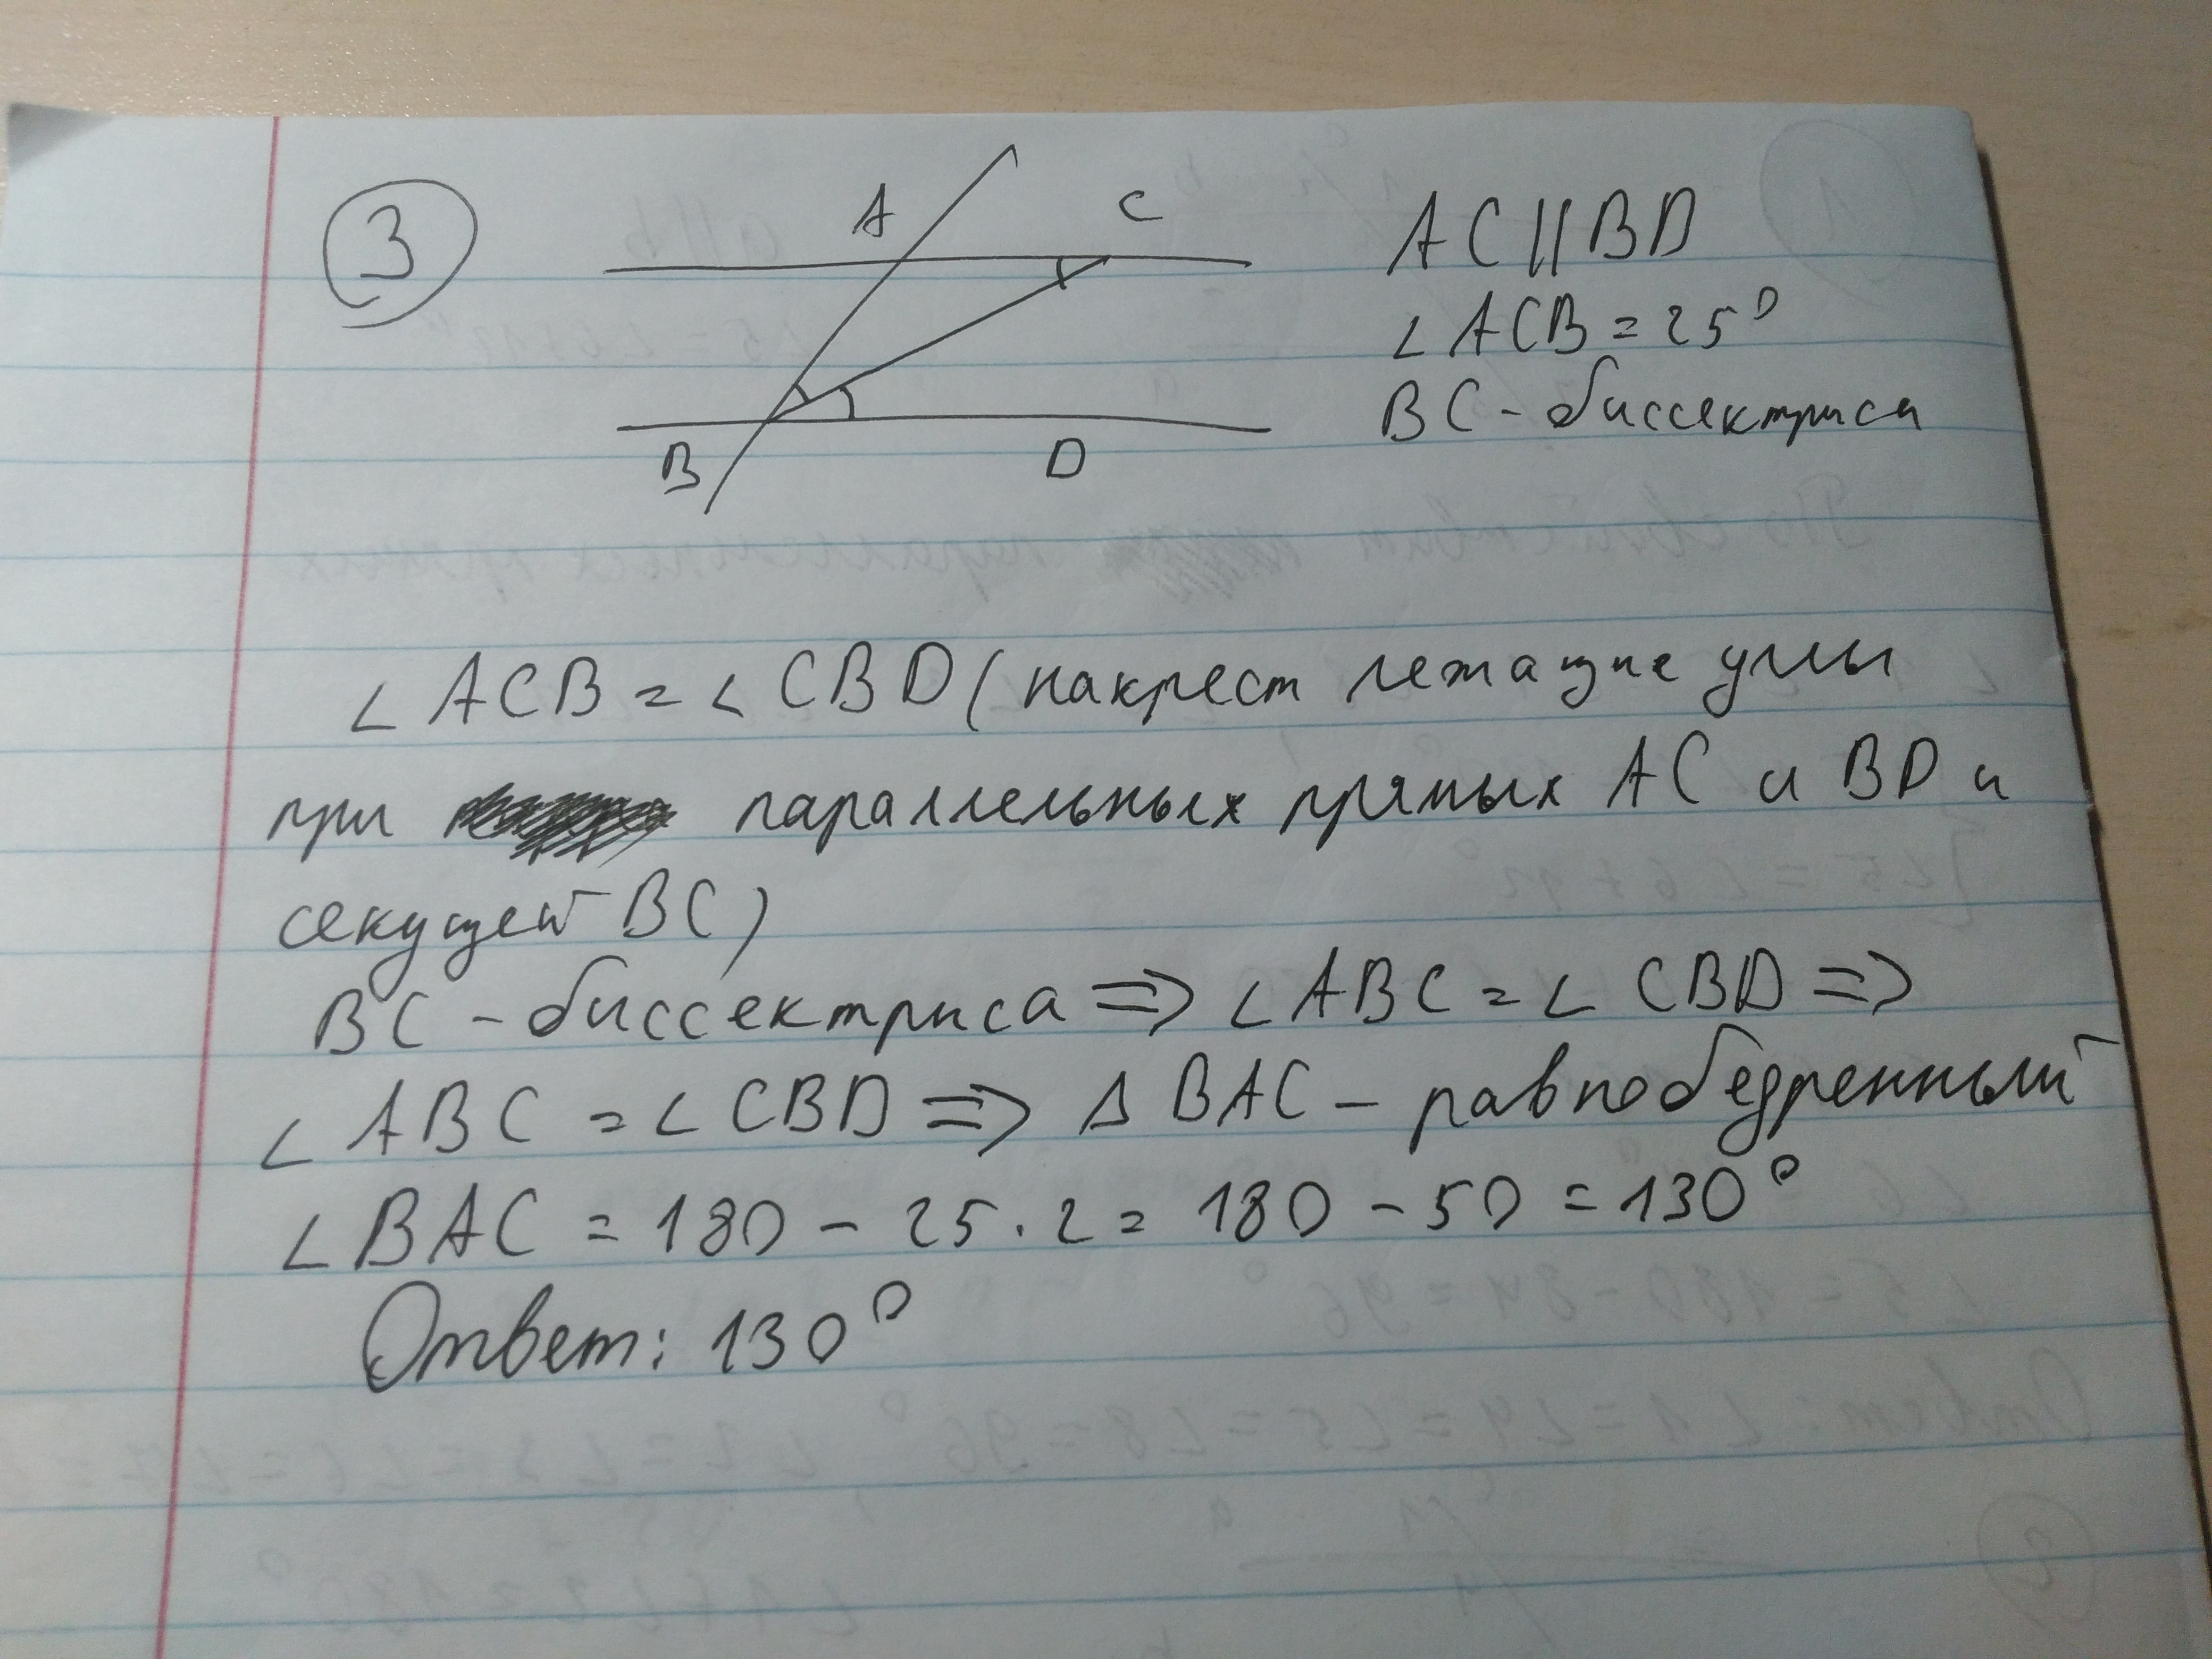 3
A C
B D
AC || BD
∠ ACB = 25°
BC - биссектриса
∠ ACB = ∠ CBD (накрест лежащие углы
при параллельных прямых AC и BD и
секущей BC)
BC - биссектриса => ∠ ABC = ∠ CBD =>
∠ ABC = ∠ CBD => Δ BAC - равнобедренный
∠ BAC = 180 - 25 · 2 = 180 - 50 = 130°
Ответ: 130°